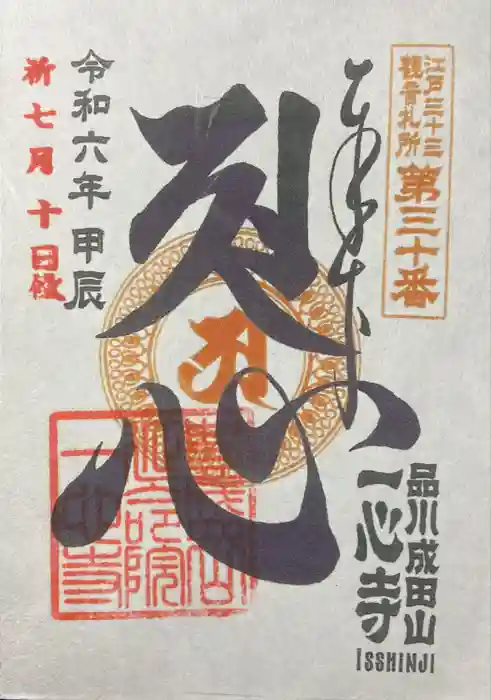 江戸三十三
觀音札所
第三十番
奉拝
心
品川成田山
一心寺
ISSHINJI
令和六年甲辰
七月十日
豊盛山
延命院
一心寺